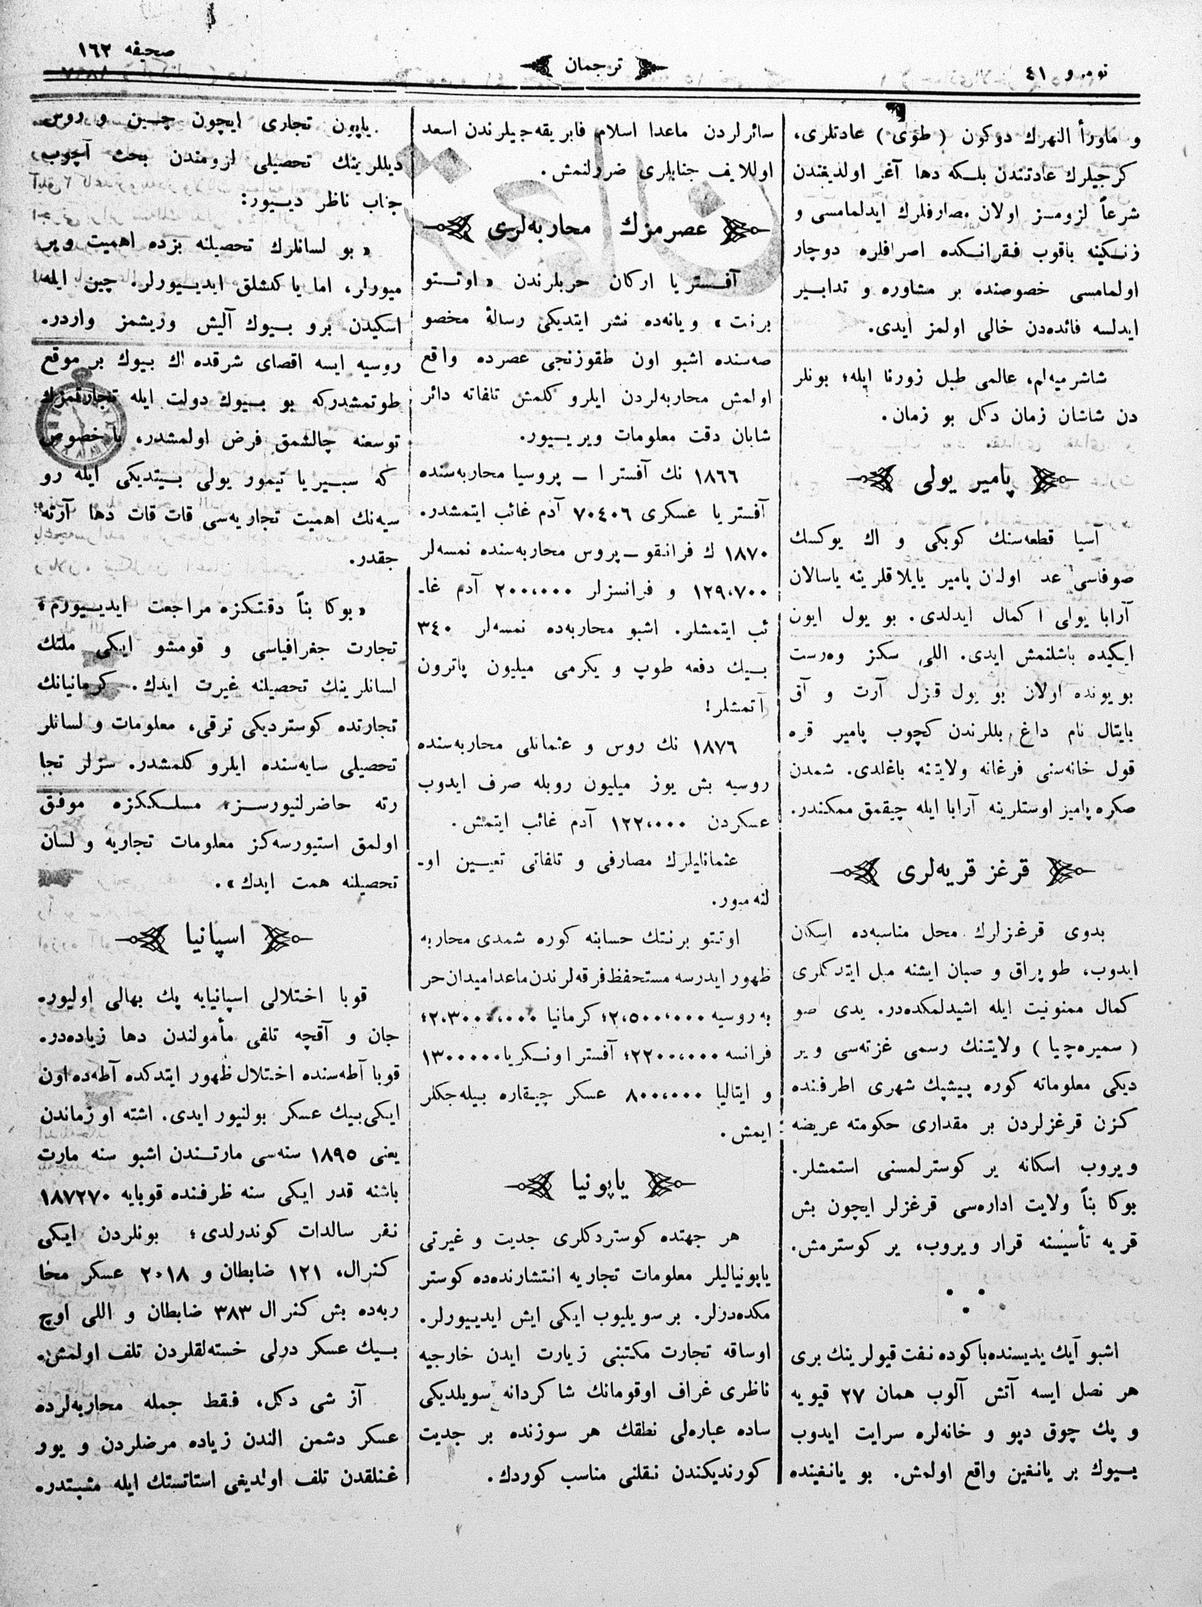 نومرو ٤١
ترجمان
صحيفه ١٦٢
و ماورأ النهرك دوكون (طوى) عادتلرى،
كرجيلرك عادتندن بلكه دها آغر اولديغندن
شرعاً لزومسز اولان مصارفلرك ايدلمامسى و
زنكينه باقوب فقرانكده اصرافلره دوچار
اولمامسى خصوصنده بر مشاوره و تدابير
ايدلسه فائده‌دن خالى اولمز ايدى.
شاشرميه‌لم، عالمى طبل زورنا ايله؛ بونلر
دن شاشان زمان دكل بو زمان.
پامير يولى
آسيا قطعه‌سنك كوبكى و اك يوكسك
صوفاسى عد اولان پامير يايلاقلرينه ياسالان
آرابا يولى اكمال ايدلدى. بو يول ايون
ايكيده باشلنمش ايدى. اللى سكز وه‌رست
بويونده اولان بو يول قزل آرت و آق
بايتال نام داغ بللرندن كچوب پامير قره
قول خانه‌سنى فرغانه ولايتنه باغلدى. شمدن
صكره پامير اوستلرينه آرابا ايله چيقمق ممكندر.
قرغز قريه‌لرى
بدوى قرغزلرك محل مناسبه‌ده اسكان
ايدوب، طوپراق و صبان ايشنه ميل ايتدكلرى
كمال ممنونيت ايله اشيدلمكده‌در. يدى صو
(سميره‌چيا) ولايتنك رسمى غزته‌سى وير
ديكى معلوماته كوره پيشپك شهرى اطرفنده
كزن قرغزلردن بر مقدارى حكومته عريضه
ويروب اسكانه ير كوسترلمسنى استمشلر.
بوكا بنأ ولايت اداره‌سى قرغزلر ايچون بش
قريه تأسيسنه قرار ويروب، ير كوسترمش.
اشبو آيك يديسنده باكوده نفت قيولرينك برى
هر نصل ايسه آتش آلوب همان ٢٧ قيويه
و پك چوق دپو و خانه‌لره سرايت ايدوب
بيوك بر يانغين واقع اولمش. بو يانغينده
سائرلردن ماعدا اسلام فابريقه‌جيلرندن اسعد
اوللايف جنابلرى ضررلنمش.
عصرمزك محاربه‌لرى
آفستريا اركان حربلرندن «اوتتو
برنت» ويانه‌ده نشر ايتديكى رسالهٔ مخصو
صه‌سنده اشبو اون طقوزنجى عصرده واقع
اولمش محاربه‌لردن ايلرو كلمش تلفاته دائر
شايان دقت معلومات ويرييور.
١٨٦٦ نك آفستريا ــ پروسيا محاربه‌سنده
آفستريا عسكرى ٧٠٤٠٦ آدم غائب ايتمشدر.
١٨٧٠ ك فرانقو ــ پروس محاربه‌سنده نمسه‌لر
١٢٩،٧٠٠ و فرانسزلر ٢٠٠،٠٠٠ آدم غا-
ئب ايتمشلر. اشبو محاربه‌ده نمسه‌لر ٣٤٠
بيك دفعه طوپ و يكرمى ميليون پاترون
آتمشلر!
١٨٧٦ نك روس و عثمانلى محاربه‌سنده
روسيه بش يوز ميليون روبله صرف ايدوب
عسكردن ١٢٢،٠٠٠ آدم غائب ايتمش.
عثمانليلرك مصارفى و تلفاتى تعيين او-
لنه‌ميور.
اوتتو برنتك حسابنه كوره شمدى محاربه
ظهور ايدرسه مستحفظ فرقه‌لرندن ماعدا ميدان حر
به روسيه ٢،٥٠٠،٠٠٠؛ كرمانيا ٢،٣٠٠٠،٠٠٠؛
فرانسه ٢٢٠٠،٠٠٠؛ آفستراونكريا ١٣٠٠٠٠٠
و ايتاليا ٨٠٠،٠٠٠ عسكر چيقاره بيله‌جكلر
ايمش.
ياپونيا
هر جهتده كوستردكلرى جديت و غيرتى
ياپونياليلر معلومات تجاريه انتشارنده‌ده كوستر
مكده‌درلر. بر سويليوب ايكى ايش ايدييورلر.
اوساقه تجارت مكتبنى زيارت ايدن خارجيه
ناظرى غراف اوقومانك شاكردانه سويلديكى
ساده عباره‌لى نطقك هر سوزنده بر جديت
كورنديكندن نقلنى مناسب كوردك.
ياپون تجارى ايچون چين و روس
ديللرينك تحصيلى لزومندن بحث آچوب
جناب ناظر دييور:
«بو لسانلرك تحصيلنه بزده اهميت وير
ميورلر، اما ياكلشلق ايدييورلر! چين ايله
اسكيدن برو بيوك آليش ويريشمز واردر.
روسيه ايسه اقصاى شرقده اك بيوك بر موقع
طوتمشدركه بو بيوك دولت ايله تجارتمزك
توسعنه چالشمق فرض اولمشدر، باخصوص
كه سبيريا تيمور يولى بيتديكى ايله رو
سيه‌نك اهميت تجاريه‌سى قات قات دها آرته
جقدر.
«بوكا بنأ دقتكزه مراجعت ايدييورم؛
تجارت جغرافياسى و قومشو ايكى ملتك
لسانلرينك تحصيلنه غيرت ايدك. كرمانيانك
تجارتده كوسترديكى ترقى، معلومات و لسانلر
تحصيلى سايه‌سنده ايلرو كلمشدر. سزلر تجا
رته حاضرلنيورسز؛ مسلككزه موفق
اولمق استيورسه‌كز معلومات تجاريه و لسان
تحصيلنه همت ايدك».
اسپانيا
قوبا اختلالى اسپانيايه پك بهالى اوليور.
جان و آقچه تلفى مأمولندن دها زياده‌در.
قوبا آطه‌سنده اختلال ظهور ايتدكده آطه‌ده اون
ايكى بيك عسكر بولنيور ايدى. اشته او زماندن
يعنى ١٨٩٥ سنه‌سى مارتندن اشبو سنه مارت
باشنه قدر ايكى سنه ظرفنده قوبايه ١٨٧٢٧٠
نفر سالدات كوندرلدى؛ بونلردن ايكى
كنرال، ١٢١ ضابطان و ٢٠١٨ عسكر محا
ربه‌ده بش كنرال ٣٨٣ ضابطان و اللى اوچ
بيك عسكر درلى خسته‌لقلردن تلف اولمش.
آز شى دكل، فقط جمله محاربه‌لرده
عسكر دشمن الندن زياده مرضلردن و يور
غنلقدن تلف اولديغى استاتستك ايله مثبتدر.